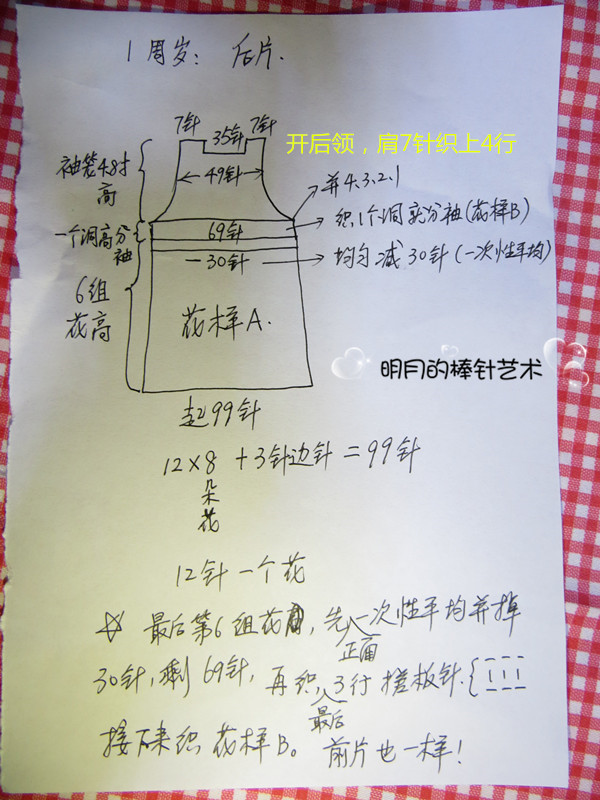 1周岁: 后片.
7针 35针 7针
开后领，肩7针织上4行
袖笼48寸高
49针
并4.3.2.1
一个洞高分袖
69针
织1个洞就分袖(花样B)
-30针
均匀减30针(一次性平均)
6组花高
花样A.
明月的棒针艺术
起99针
12×8 +3针边针=99针
朵花
12针一个花
☆ 最后第6组花, 先一次性平均并掉
正面
30针, 剩69针, 再织, 3行搓板针
最后
接下来织花样B。前片也一样!